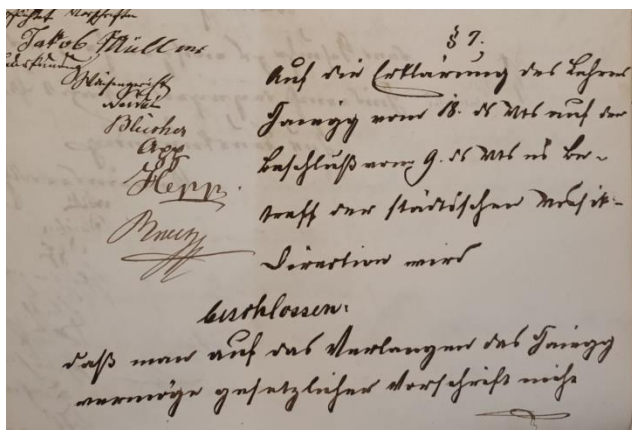 Vorschriften
Jakob Müller
Waisengericht
Blücher
App
Hepp.
§ 7.
Auf die Erklärung des Lehrers
vom 18. ds Mts auf den
Beschluß vom 9. ds Mts in Be-
treff der städtischen Musik-
Direction wird
beschlossen:
daß man auf das Verlangen des
vermöge gesetzlicher Vorschrift nicht